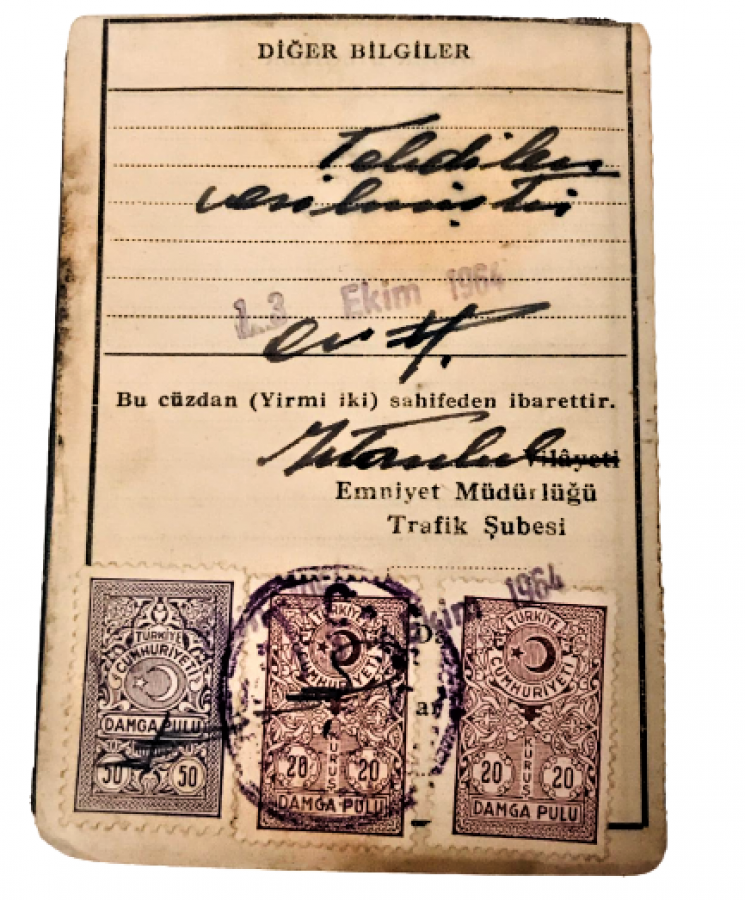 DİĞER BİLGİLER
Tebdilen
verilmiştir
13 Ekim 1964
Bu cüzdan (Yirmi iki) sahifeden ibarettir.
İstanbul Vilâyeti
Emniyet Müdürlüğü
Trafik Şubesi
Ekim 1964
TÜRKİYE
CUMHURİYETİ
DAMGA PULU
50 50
TÜRKİYE
CUMHURİYETİ
20 KURUŞ 20
DAMGA PULU
TÜRKİYE
CUMHURİYETİ
20 KURUŞ 20
DAMGA PULU